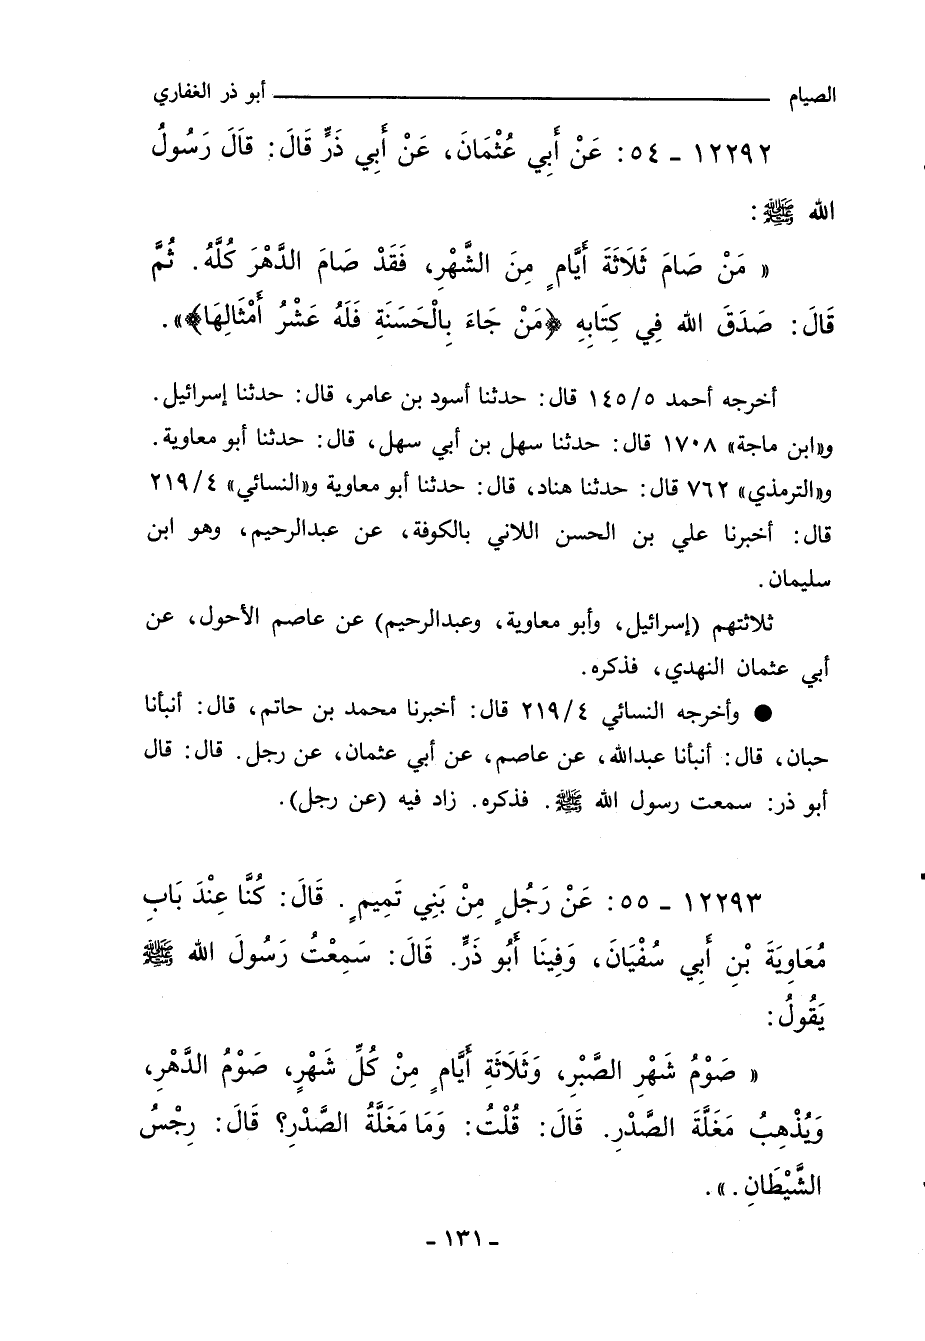 الصيام ــــــــــ أبو ذر الغفاري
١٢٢٩٢ ـ ٥٤: عَنْ أَبِي عُثْمَانَ، عَنْ أَبِي ذَرٍّ قَالَ: قَالَ رَسُولُ
الله ﷺ:
« مَنْ صَامَ ثَلَاثَةَ أَيَّامٍ مِنَ الشَّهْرِ، فَقَدْ صَامَ الدَّهْرَ كُلَّهُ. ثُمَّ
قَالَ: صَدَقَ الله فِي كِتَابِهِ ﴿مَنْ جَاءَ بِالْحَسَنَةِ فَلَهُ عَشْرُ أَمْثَالِهَا﴾».
أخرجه أحمد ١٤٥/٥ قال: حدثنا أسود بن عامر، قال: حدثنا إسرائيل.
و«ابن ماجة» ١٧٠٨ قال: حدثنا سهل بن أبي سهل، قال: حدثنا أبو معاوية.
و«الترمذي» ٧٦٢ قال: حدثنا هناد، قال: حدثنا أبو معاوية و«النسائي» ٢١٩/٤
قال: أخبرنا علي بن الحسن اللاني بالكوفة، عن عبدالرحيم، وهو ابن
سليمان.
ثلاثتهم (إسرائيل، وأبو معاوية، وعبدالرحيم) عن عاصم الأحول، عن
أبي عثمان النهدي، فذكره.
● وأخرجه النسائي ٢١٩/٤ قال: أخبرنا محمد بن حاتم، قال: أنبأنا
حبان، قال: أنبأنا عبدالله، عن عاصم، عن أبي عثمان، عن رجل. قال: قال
أبو ذر: سمعت رسول الله ﷺ. فذكره. زاد فيه (عن رجل).
١٢٢٩٣ ـ ٥٥: عَنْ رَجُلٍ مِنْ بَنِي تَمِيمٍ. قَالَ: كُنَّا عِنْدَ بَابِ
مُعَاوِيَةَ بْنِ أَبِي سُفْيَانَ، وَفِينَا أَبُو ذَرٍّ. قَالَ: سَمِعْتُ رَسُولَ الله ﷺ
يَقُولُ:
« صَوْمُ شَهْرِ الصَّبْرِ، وَثَلَاثَةِ أَيَّامٍ مِنْ كُلِّ شَهْرٍ، صَوْمُ الدَّهْرِ،
وَيُذْهِبُ مَغَلَّةَ الصَّدْرِ. قَالَ: قُلْتُ: وَمَا مَغَلَّةُ الصَّدْرِ؟ قَالَ: رِجْسُ
الشَّيْطَانِ.».
ـ ١٣١ ـ